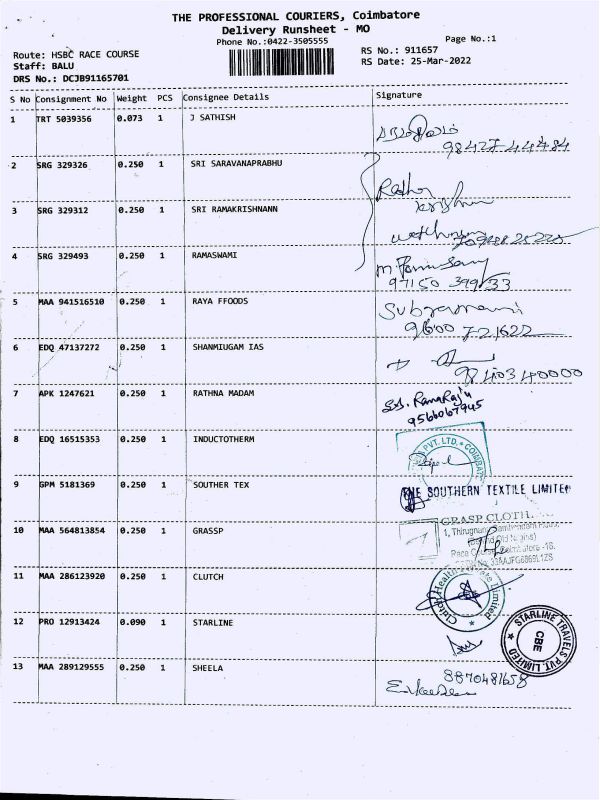 THE PROFESSIONAL COURIERS, Coimbatore
Delivery Runsheet - MO
Phone No.:0422-3505555
Page No.:1
Route: HSBC RACE COURSE
RS No.: 911657
Staff: BALU
RS Date: 25-Mar-2022
DRS No.: DCJB91165701
S No Consignment No Weight PCS Consignee Details Signature
1 TRT 5039356 0.073 1 J SATHISH
98427-44484
2 SRG 329326 0.250 1 SRI SARAVANAPRABHU
3 SRG 329312 0.250 1 SRI RAMAKRISHNANN
4 SRG 329493 0.250 1 RAMASWAMI
97150 39933
5 MAA 941516510 0.250 1 RAYA FFOODS
9600 721622
6 EDQ 47137272 0.250 1 SHANMIUGAM IAS
98403 40000
7 APK 1247621 0.250 1 RATHNA MADAM
9566067945
8 EDQ 16515353 0.250 1 INDUCTOTHERM
PVT. LTD.
9 GPM 5181369 0.250 1 SOUTHER TEX
THE SOUTHERN TEXTILE LIMITED
10 MAA 564813854 0.250 1 GRASSP
GRASP CLOTH
11 MAA 286123920 0.250 1 CLUTCH
12 PRO 12913424 0.090 1 STARLINE
STARLINE TRAVELS PVT. LIMITED
CBE
13 MAA 289129555 0.250 1 SHEELA
8870481658